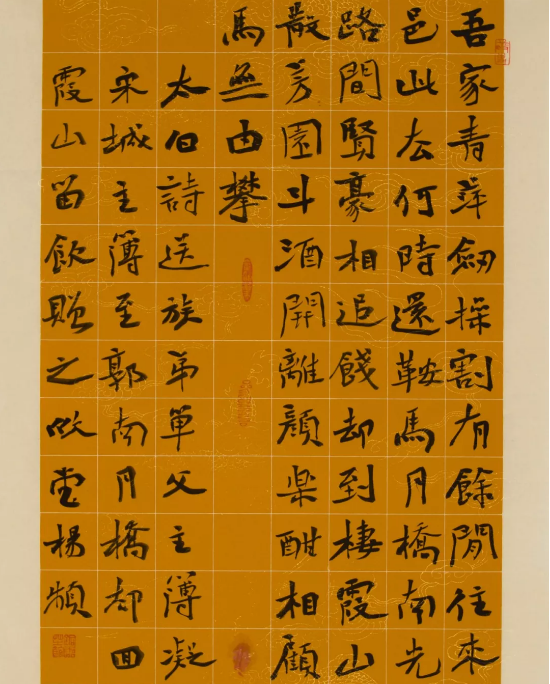 吾家青萍劒操割有餘閒往來
邑此去何時還鞍馬月橋南光
路間賢豪相追餞却到棲霞山
散芳園斗酒開離顏樂酣相顧
馬無由攀
太白詩送族弟單父主簿凝
宋城主簿至郭南月橋却回
霞山留飲贈之堂楊